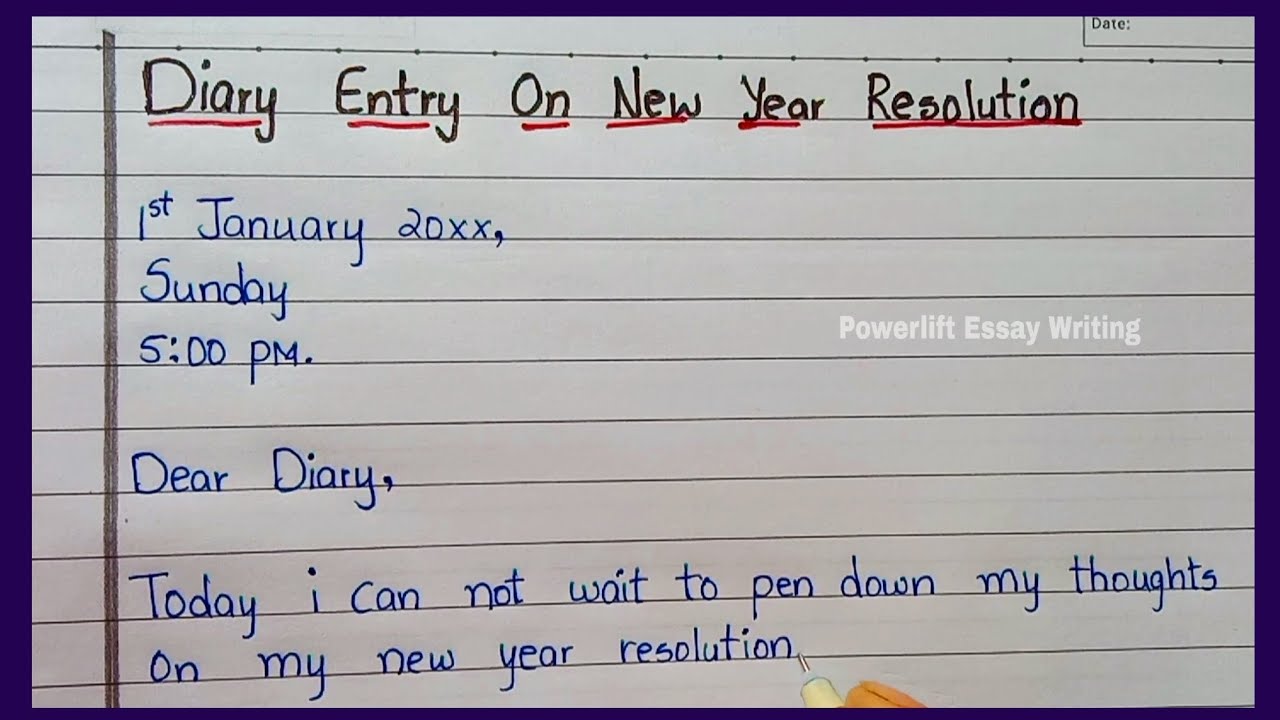 Date:
Diary Entry On New Year Resolution
1st January 20xx,
Sunday
5:00 PM.
Powerlift Essay Writing
Dear Diary,
Today i can not wait to pen down my thoughts
on my new year resolution,